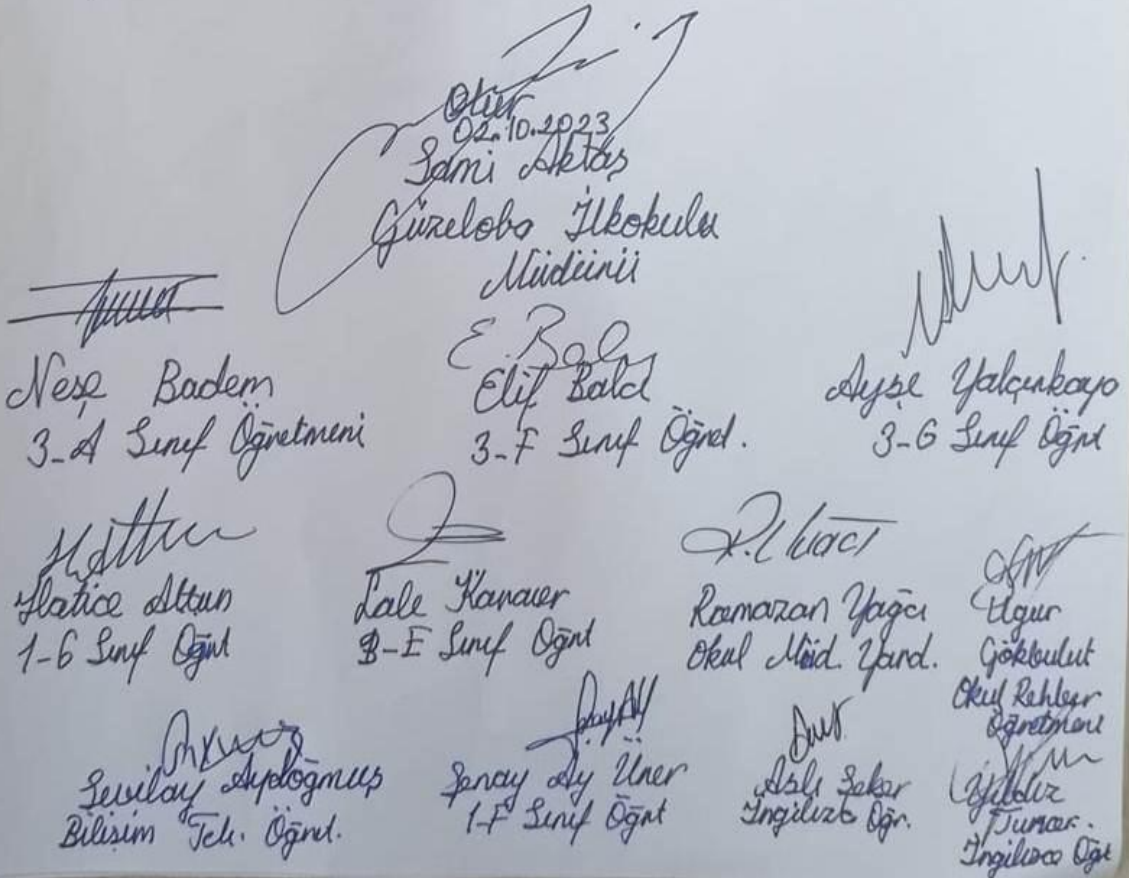 Olur
02.10.2023
Sami Aktaş
Güzeloba İlkokulu
Müdürü
E. Balcı
Neşe Badem
3-A Sınıf Öğretmeni
Elif Balcı
3-F Sınıf Öğret.
Ayşe Yalçınkaya
3-G Sınıf Öğrt
Hatice Altun
1-G Sınıf Öğrt
Lale
3-E Sınıf Öğrt
Ramazan Yağcı
Okul Müd. Yard.
Ugur
Gökbulut
Okul Rehber
Öğretmeni
Sevilay Aydoğmuş
Bilişim Tek. Öğret.
Şenay Ay Üner
1-F Sınıf Öğrt
Aslı Şeker
İngilizce Öğr.
Yıldız
Tumer.
İngilizce Öğt